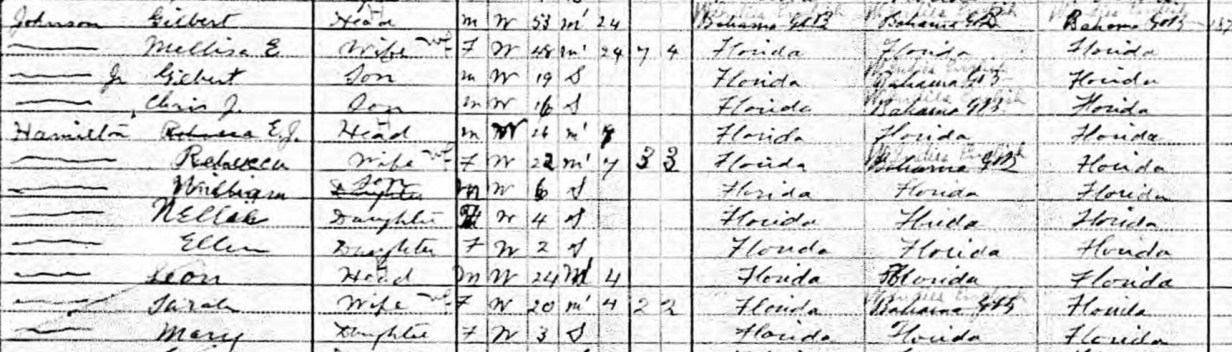 Johnson Gilbert Head M W 53 M1 24 Bahama GtB Bahama GtB Bahama GtB
— Mellisa E Wife F W 48 M1 24 7 4 Florida Florida Florida
— Jr Gilbert Son M W 19 S Florida Bahama GtB Florida
— Chris J. Son M W 16 S Florida Bahama GtB Florida
Hamilton E.J. Head M W 26 M1 7 Florida Florida Florida
— Rebecca Wife F W 22 M1 7 3 3 Florida Bahama GtB Florida
— William Son Daughter M W 6 S Florida Florida Florida
— Nellie Daughter F W 4 S Florida Florida Florida
— Ellen Daughter F W 2 S Florida Florida Florida
— Leon Head M W 24 M1 4 Florida Florida Florida
— Sarah Wife F W 20 M1 4 2 2 Florida Bahama GtB Florida
— Mary Daughter F W 3 S Florida Florida Florida